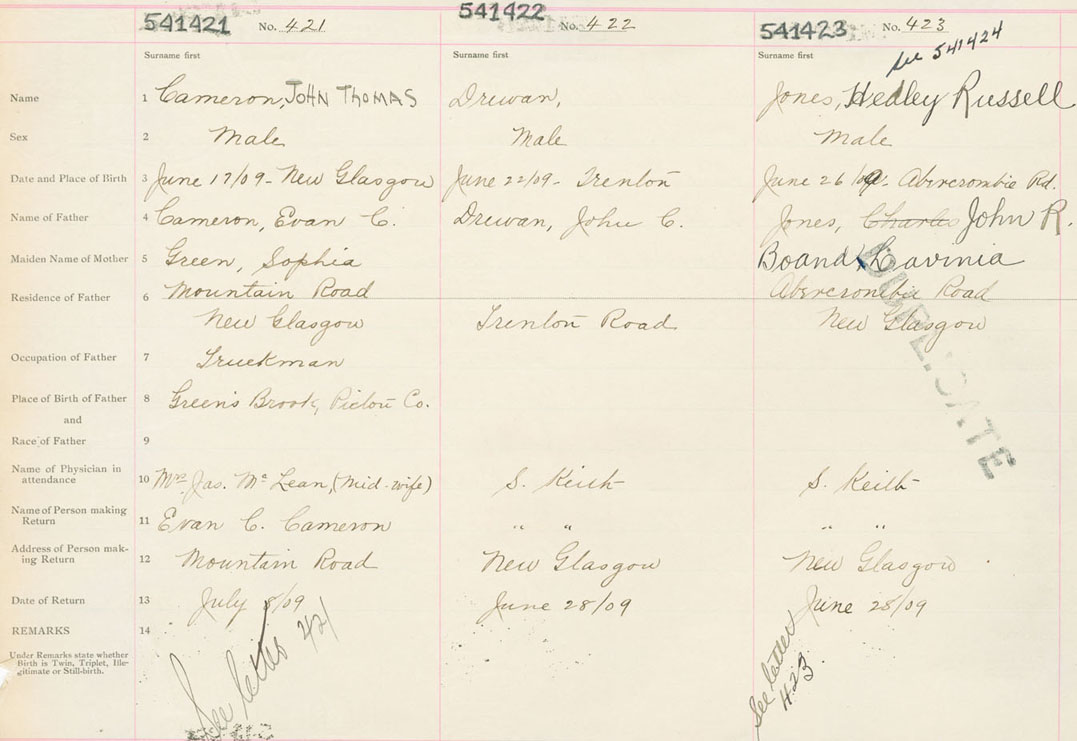 541421 No. 421 541422 No. 422 541423 No. 423
See 541424
Surname first Surname first Surname first
Name 1 Cameron, JOHN THOMAS Drewan, Jones, Hedley Russell
Sex 2 Male Male Male
Date and Place of Birth 3 June 17/09 - New Glasgow June 22/09 - Trenton June 26/09 - Abercrombie Rd.
Name of Father 4 Cameron, Evan C. Drewan, John C. Jones, Charles John R.
Maiden Name of Mother 5 Green, Sophia Boand, Lavinia
Residence of Father 6 Mountain Road Abercrombie Road
New Glasgow Trenton Road New Glasgow
Occupation of Father 7 Truckman
Place of Birth of Father 8 Green's Brook, Pictou Co.
and
Race of Father 9
Name of Physician in attendance 10 Mrs. Jas. Mc Lean, (Mid-wife) S. Keith S. Keith
Name of Person making Return 11 Evan C. Cameron " " " "
Address of Person mak-ing Return 12 Mountain Road New Glasgow New Glasgow
Date of Return 13 July 8/09 June 28/09 June 28/09
REMARKS 14
Under Remarks state whether
Birth is Twin, Triplet, Ille-
gitimate or Still-birth.
See letter 421
See letter 423
DUPLICATE